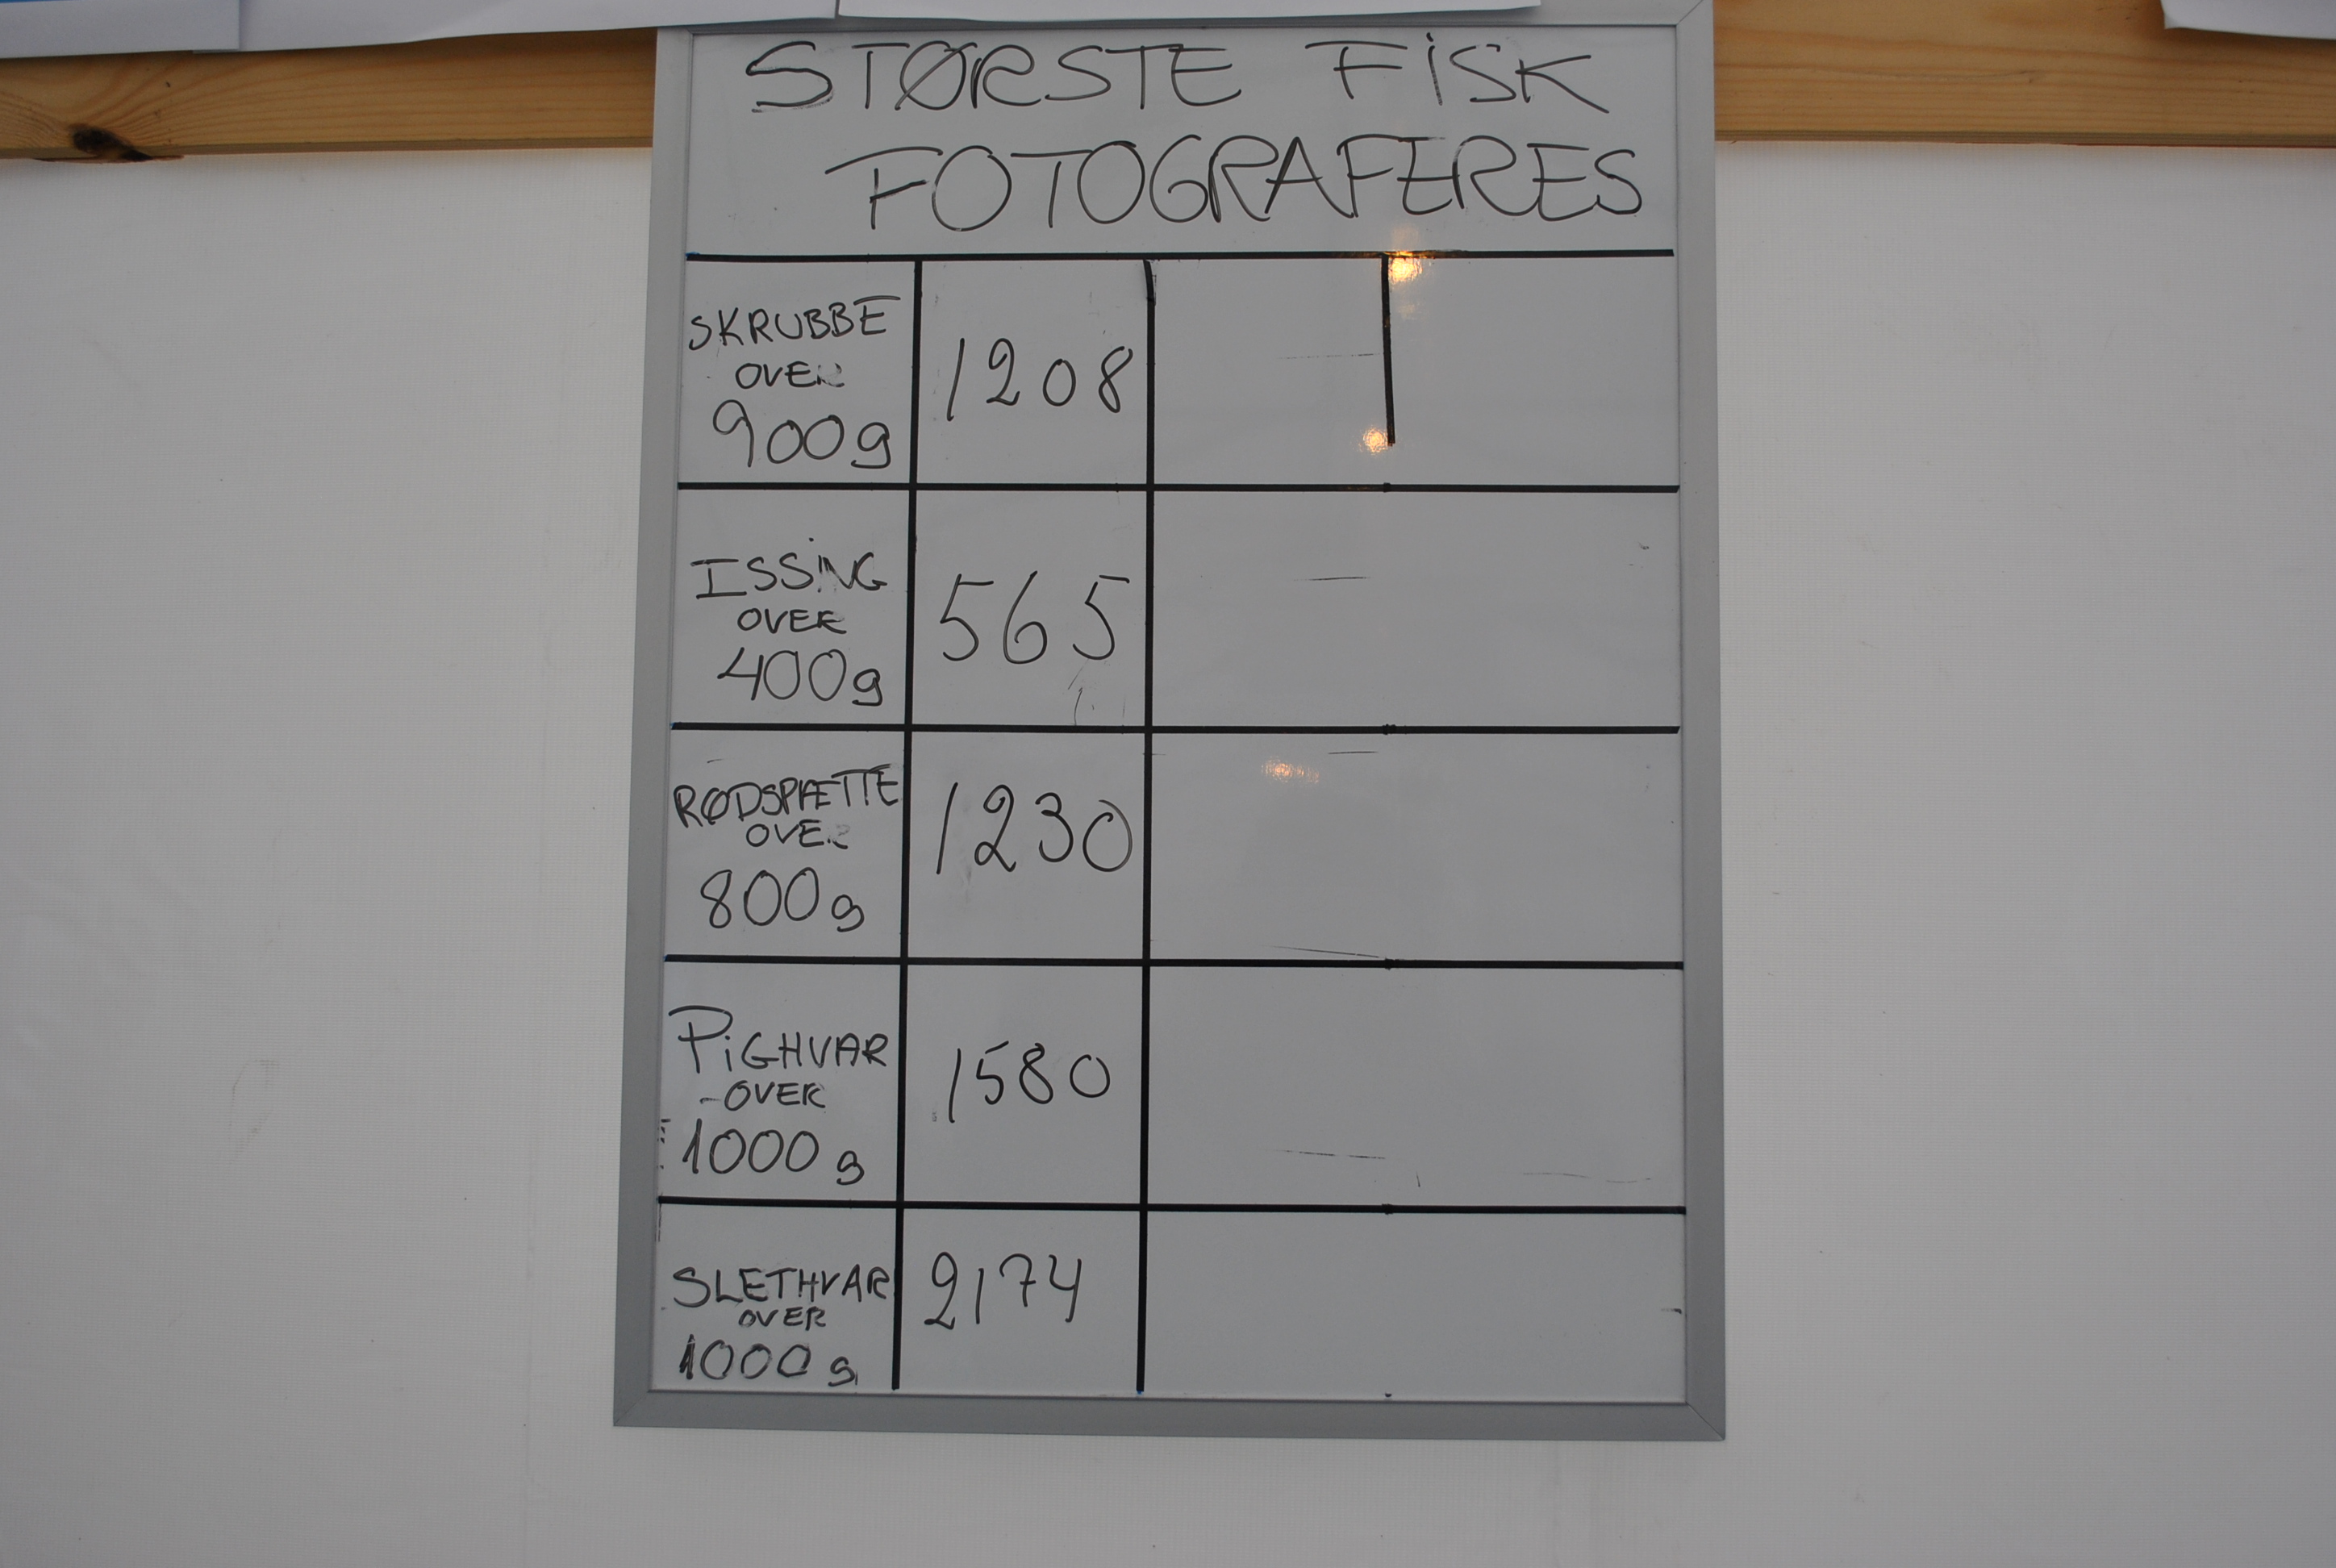 STØRSTE FISK
FOTOGRAFERES
SKRUBBE
OVER
900g
1208
ISSING
OVER
400g
565
RØDSPÆTTE
OVER
800g
1230
PIGHVAR
OVER
1000g
1580
SLETHVAR
OVER
1000g
2174